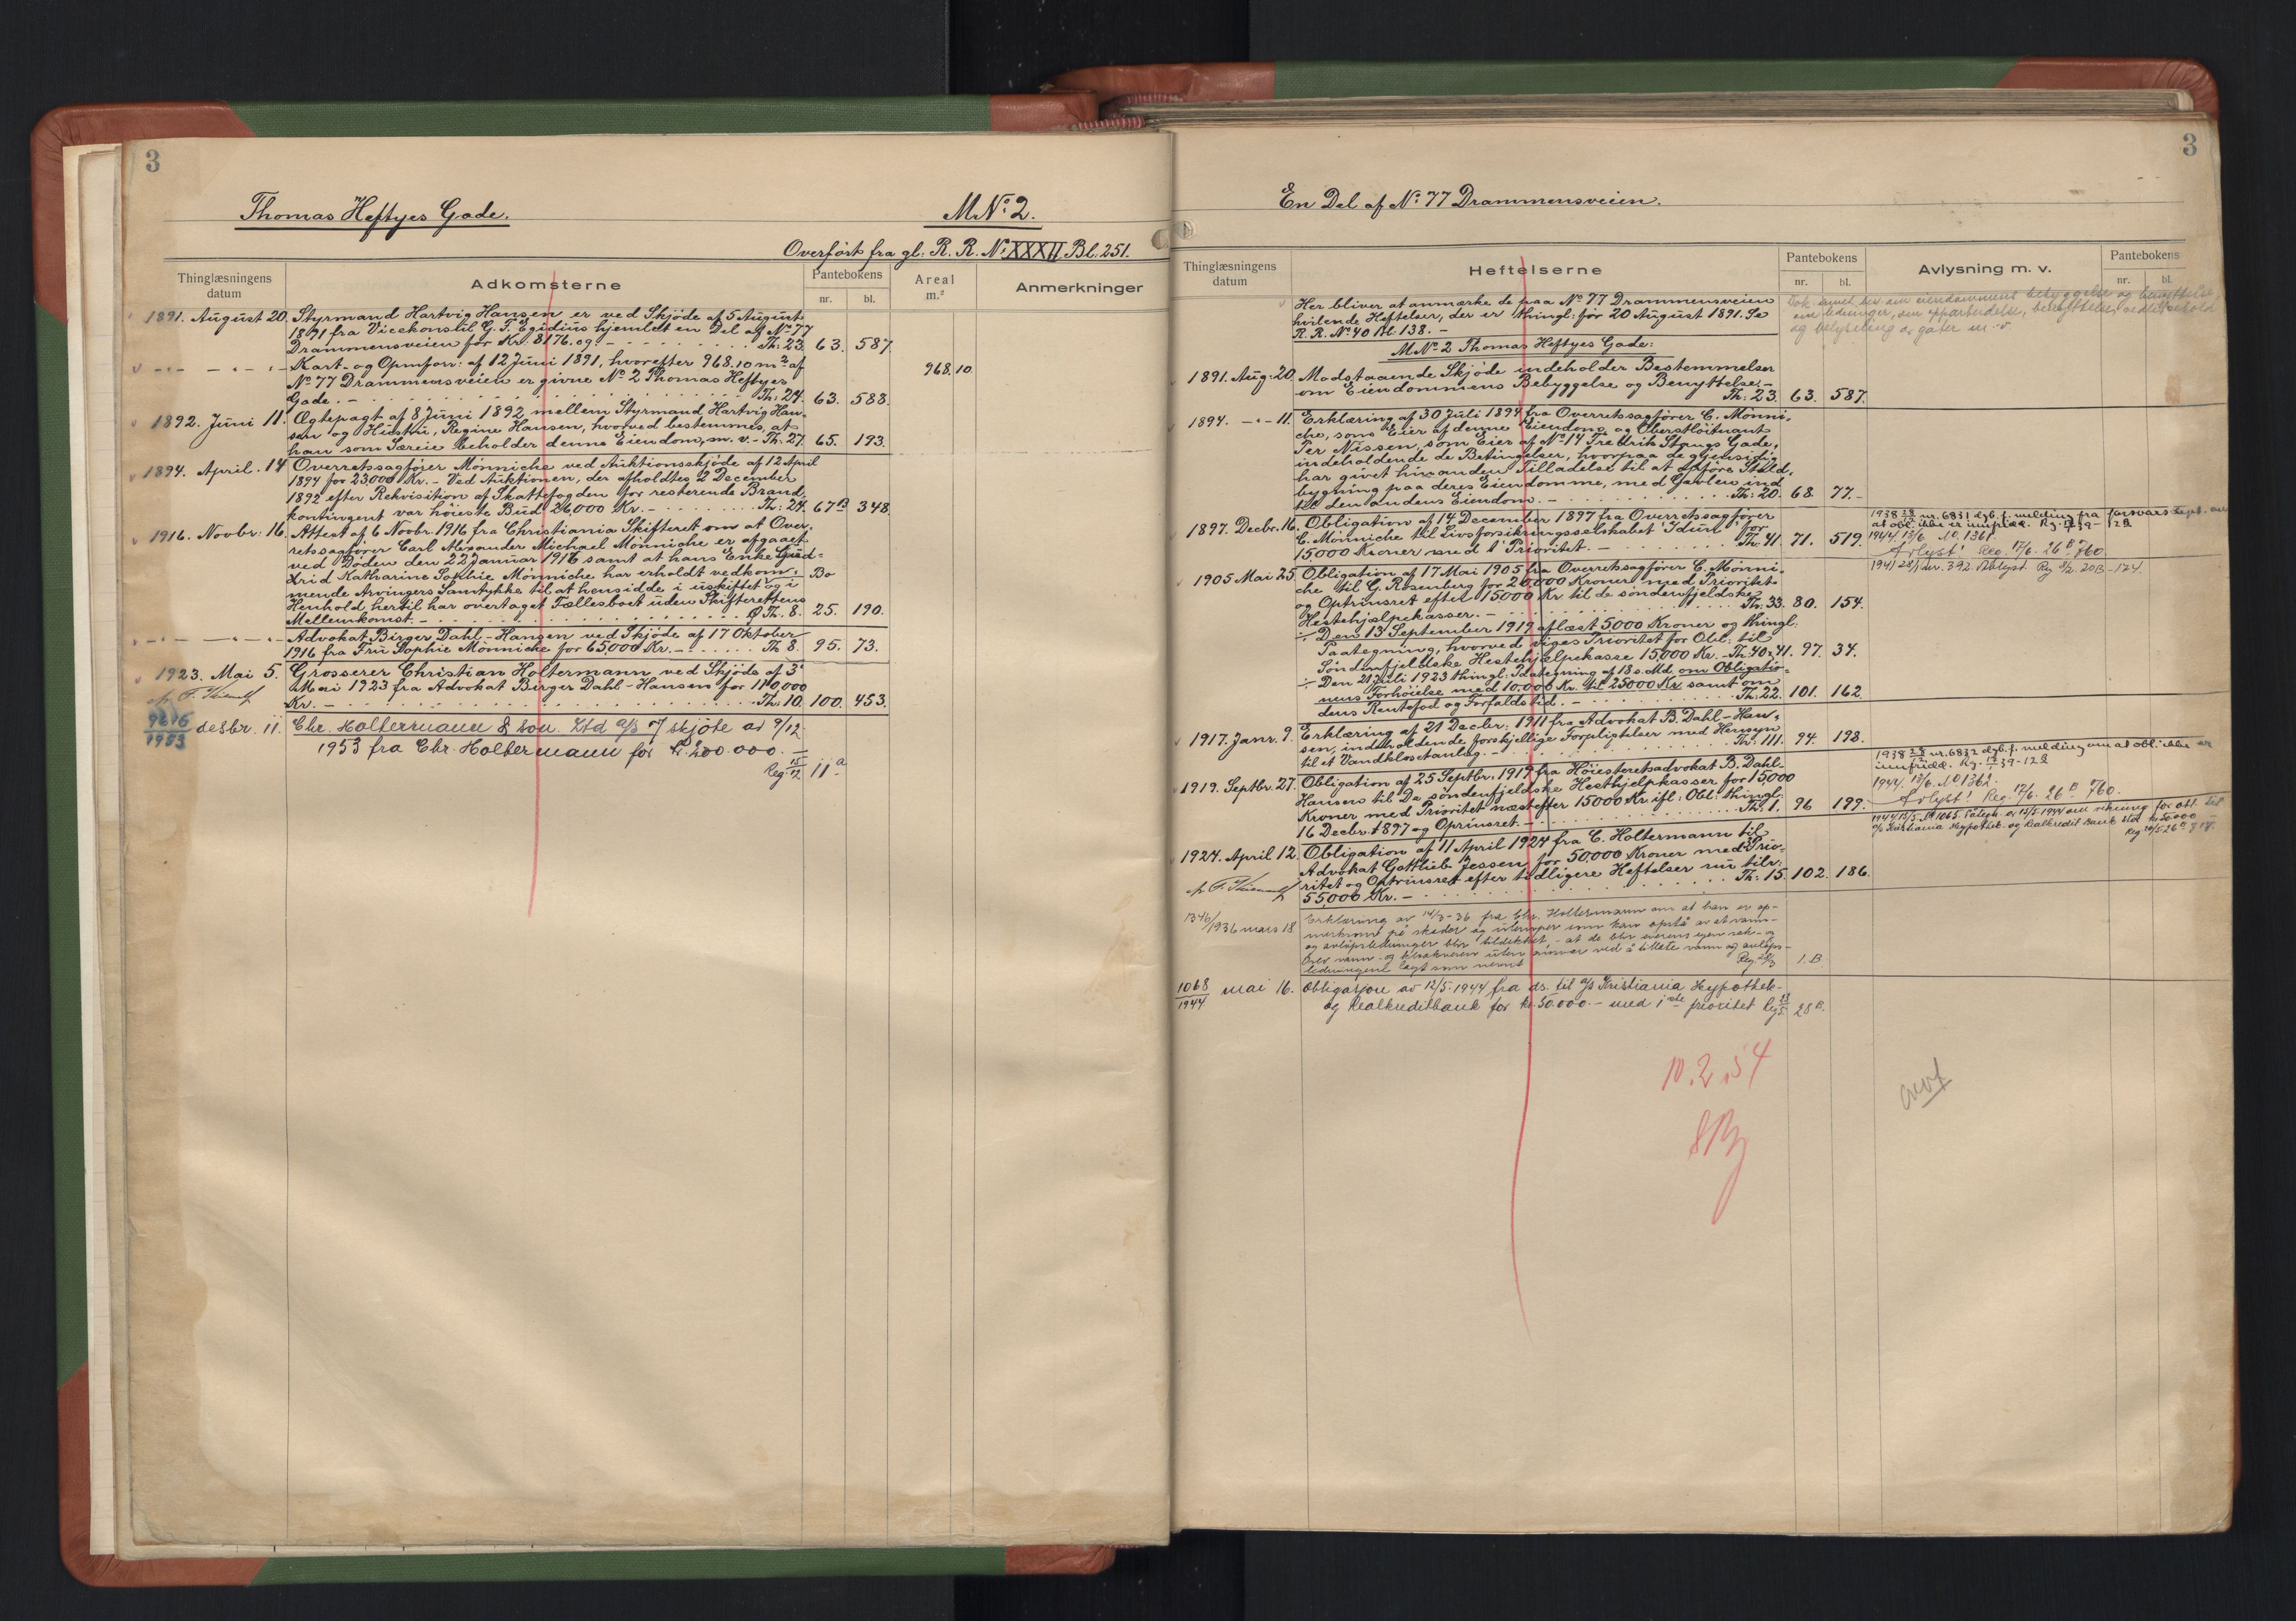 3
Thomas Heftyes Gade.
M.No. 2.
Overført fra gl. R. R. No. XXXII. Bl. 251.
Thinglæsningens datum
Adkomsterne
Pantebokens
nr. bl.
Areal m.²
Anmerkninger
1891. August 20. Styrmand Hartvig Hansen er ved Skjöde af 5 August
1891 fra Vicekonsul G. F. Egidius hjemlet en Del af No 77
Drammensveien for Kr. 8176. og - Th: 23. 63. 587.
Kart- og Opmforr: af 12 Juni 1891, hvorefter 968.10 m² af 968.10
No 77 Drammensveien er givne No 2 Thomas Heftyes
Gade. - Th: 24. 63. 588.
1892. Juni 11. Ægtepagt af 8 Juni 1892 mellem Styrmand Hartvig Han-
sen og Hustru, Regine Hansen, hvorved bestemmes, at
han som Særeie beholder denne Eiendom, m. v. - Th: 27. 65. 193.
1894. April. 14 Overretssagfører Mönniche ved Auktionsskjöde af 12 April
1894 for 23,000 Kr. - Ved Auktionen, der afholdtes 2 December
1892 efter Rekvisition af Skattefogden for resterende Brand-
kontingent var höieste Bud 26,000 Kr. - Th: 24. 67B 348.
1916. Novbr. 16. Attest af 6 Novbr. 1916 fra Christiania Skifteret om at Over-
retssagfører Carl Alexander Michael Mönniche er afgaaet
ved Døden den 22 Januar 1916 samt at hans Enke Gud-
rid Katharine Sophie Mönniche har erholdt vedkom-
mende Arvingers Samtykke til at hensidde i uskiftet og i Bo
Henhold hertil har overtaget Fællesboet uden Skifterettens
Mellemkomst. - Th. 8. 25. 190.
Advokat Birger Dahl-Hansen ved Skjøde af 17 Oktober
1916 fra Fru Sophie Mönniche for 65,000 Kr. - Th 8. 95. 73.
1923. Mai 5. Grosserer Christian Holtermann ved Skjøde af 3
Mai 1923 fra Advokat Birger Dahl-Hansen for 110,000
Kr. - Th: 10. 100. 453.
1953 desbr. 11. Chr. Holtermann & Son. Ltd a/s skjøte av 9/12
1953 fra Chr. Holtermann for kr 200 000. -
Reg. 15/12 11a
3
En Del af No. 77 Drammensveien.
Thinglæsningens datum
Heftelserne
Pantebokens
nr. bl.
Avlysning m. v.
Pantebokens
nr. bl.
Her bliver at anmærke de paa No 77 Drammensveien
hvilende Heftelser, der er thingl: før 20 August 1891. Se
R. R. No. 40 Bl. 138. -
M.No 2 Thomas Heftyes Gade:
1891. Aug. 20. Modstaaende Skjöde indeholder Bestemmelser
om Eiendommens Bebyggelse og Benyttelse. -
Th: 23. 63. 587.
1894. - 11. Erklæring af 30 Juli 1894 fra Overretssagfører C. Mönni-
che, som Eier af denne Eiendom, og Oberstløitnant
Per Nissen, som Eier af No 14 Fredrik Stangs Gade,
indeholdende de Betingelser, hvorpaa de gjensidig
har givet hinanden Tilladelse til at opføre Stald-
bygning paa deres Eiendomme, med Gavlen ind
til den andens Eiendom. - Th: 20. 68. 77. -
1897. Decbr. 16. Obligation af 14 December 1897 fra Overretssagfører
C. Mönniche til Livsforsikringsselskabet "Idun" for
15000 Kroner med 1 Prioritet. - Th: 41 71. 519.
nr. 6831 melding fra forsvars
at obl. ikke er innfridd.
1944. 13/6. No. 1361
Avlyst! Reg. 17/6. 26B 760.
1905 Mai 25. Obligation af 17 Mai 1905 fra Overretssagfører C. Mönni-
che til G. Rosenberg for 20,000 Kroner med Prioritet
og Optrinsret efter 15000 Kr til de søndenfjeldske
Hestehjælpekasser. - Th: 33. 80. 154.
1941 28/1 nr. 392 Avlyst. Reg 20B - 124.
Den 13 September 1919 aflæst 5000 Kroner og thingl:
Paategning, hvorved viges Prioritet for Obl: til
Søndenfjeldske Hestehjælpekasse 15,000 Kr. - Th: 40 & 41. 97. 34.
Den 21 Juli 1923 thingl: Paategning af 18 s. Md. om Obligatio-
nens Forhöielse med 10.000 Kr. til 25000 Kr samt om
dens Rentefod og Forfaldstid. - Th: 22. 101. 162
1917. Janr. 9. Erklæring af 21 Decbr: 1911 fra Advokat B. Dahl-Han-
sen, indeholdende forskjellige Forpligtelser med Hensyn
til et Vandklosetanlæg. - Th: 111. 94. 198.
1919. Septbr. 27. Obligation af 25 Septbr. 1919 fra Höiesteretsadvokat B. Dahl-
Hansens til De søndenfjeldske Hesthjelpkasser for 15000
Kroner med Prioritet næstefter 15000 Kr ifl: Obl: thingl:
16 Decbr. 1897 og Oprinsret. - Th: 1. 96 199.
nr. 6832 melding om at obl. ikke er
innfridd.
1944. 13/6. No 1362.
Avlyst! Reg. 17/6. 26B 760.
1924. April 12. Obligation af 11 April 1924 fra C. Holtermann til
Advokat Gottlieb Jessen for 50,000 Kroner med Prio-
ritet og Optrinsret efter tidligere Heftelser nu tilv:
55,000 Kr. - Th: 15. 102. 186.
1346/1936 mars 18 Erklæring av 14/3-36 fra Chr. Holtermann om at han er op-
merksom på skader og ulemper som kan opstå av at vann-
og avløpsledninger blir tildekket,
ledningene lagt som nevnt 1.B.
1068/1944 mai 16. Obligasjon av 12/5. 1944 fra ds. til a/s Kristiania Hypothek-
og Realkreditbank for kr. 50.000.- med 1ste prioritet Reg 28B.
10.2.54